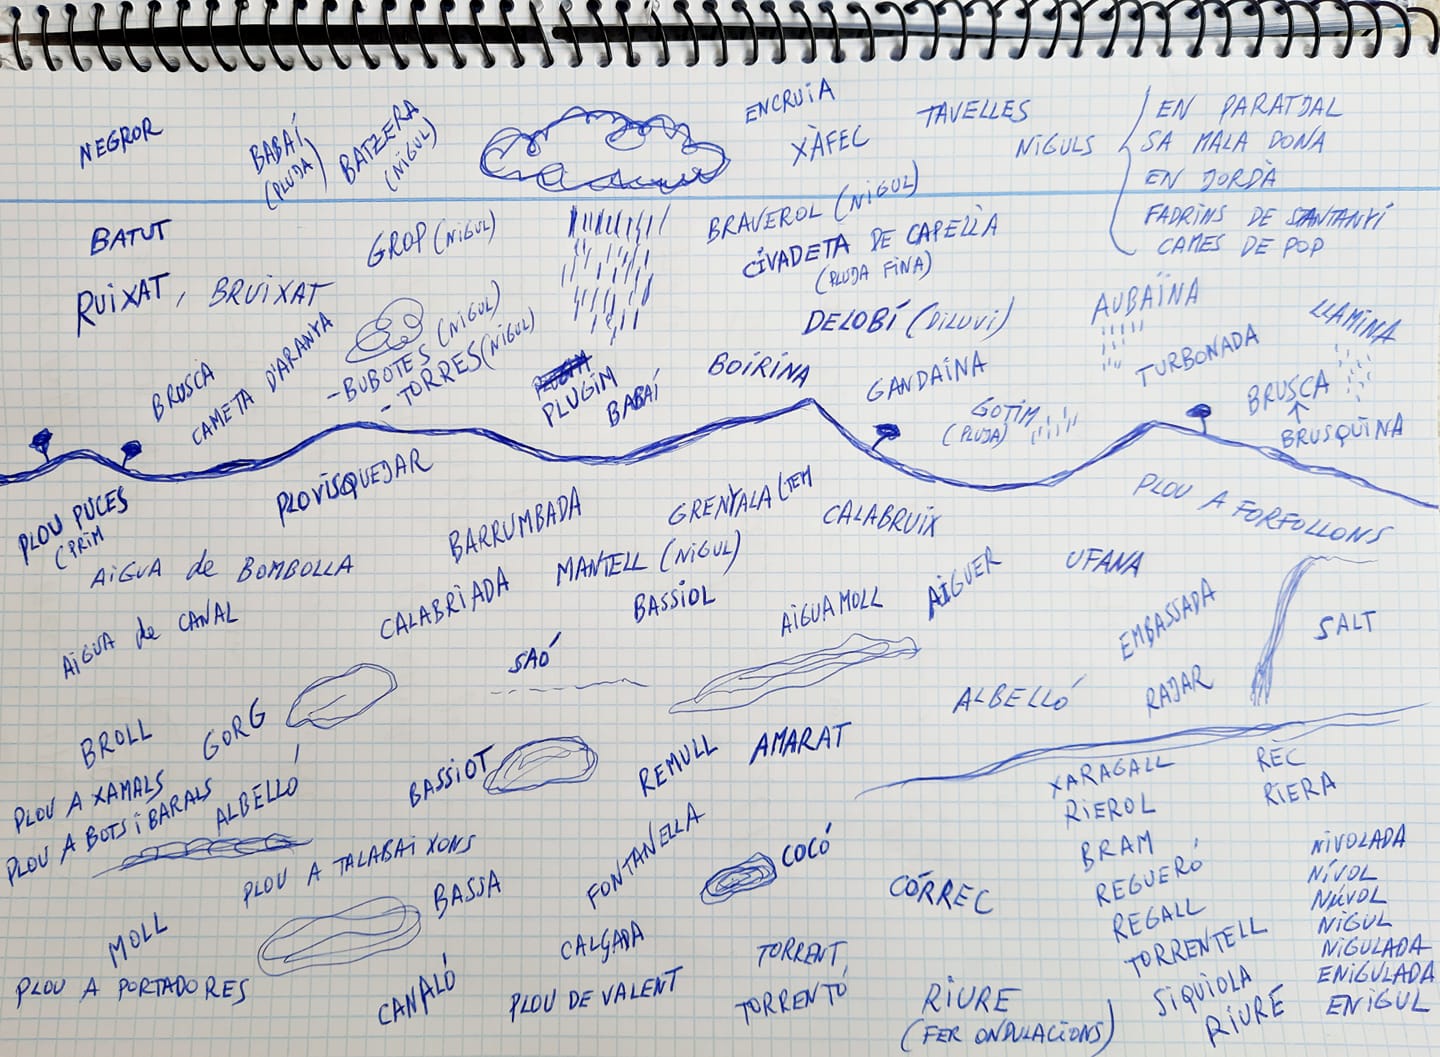 NEGROR
BABAÍ
(PLUJA)
BATZERA
(NIGUL)
ENCRUIA
XÀFEC
TAVELLES
NIGULS
EN PARATJAL
SA MALA DONA
EN JORDÀ
FADRINS DE SANTANYÍ
CAMES DE POP
BATUT
RUIXAT, BRUIXAT
GROP (NIGUL)
BRAVEROL (NIGUL)
CIVADETA DE CAPELLÀ
(PLUJA FINA)
DELOBÍ (DILUVI)
AUBAÏNA
TURBONADA
LLAMINA
BRUSCA
CAMETA D'ARANYA
- BUBOTES (NIGUL)
- TORRES (NIGUL)
PLUGIM
BABAÍ
BOIRINA
GANDAINA
GOTIM
(PLUJA)
BRUSCA
BRUSQUINA
PLOU PUCES
(PRIM
PLOVISQUEJAR
AIGUA de BOMBOLLA
AIGUA de CANAL
BARRUMBADA
CALABRIADA
GRENYAL
CALABRUIX
PLOU A FORFOLLONS
MANTELL (NIGUL)
BASSIOL
AIGUAMOLL
AIGUER
UFANA
EMBASSADA
SALT
SAÓ
ALBELLÓ
RAJAR
BROLL
GORG
PLOU A XAMALS
PLOU A BOTS I BARALS
ALBELLÓ
BASSIOT
REMULL
AMARAT
XARAGALL
RIEROL
REC
RIERA
PLOU A TALABAIXONS
BASSA
FONTANELLA
COCÓ
CÓRREC
BRAM
REGUERÓ
REGALL
TORRENTELL
SIQUIOLA
RIURÉ
NIVOLADA
NÍVOL
NÚVOL
NIGUL
NIGULADA
ENIGULADA
ENIGUL
MOLL
PLOU A PORTADORES
CANALÓ
CALÇADA
PLOU DE VALENT
TORRENT,
TORRENTÓ
RIURE
(FER ONDULACIONS)